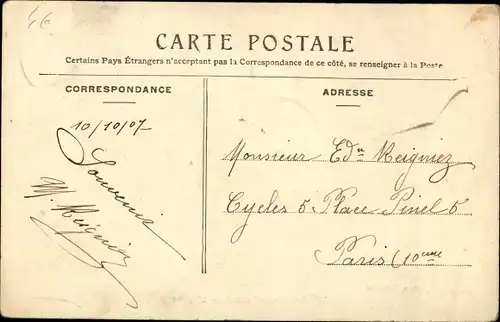 4c
CARTE POSTALE
Certains Pays Étrangers n'acceptant pas la Correspondance de ce côté, se renseigner à la Poste
CORRESPONDANCE
10/10/07
Souvenir
M. Meigniez
ADRESSE
Monsieur Edn Meigniez
Cycles 5 Place Pinel 5
Paris (10eme